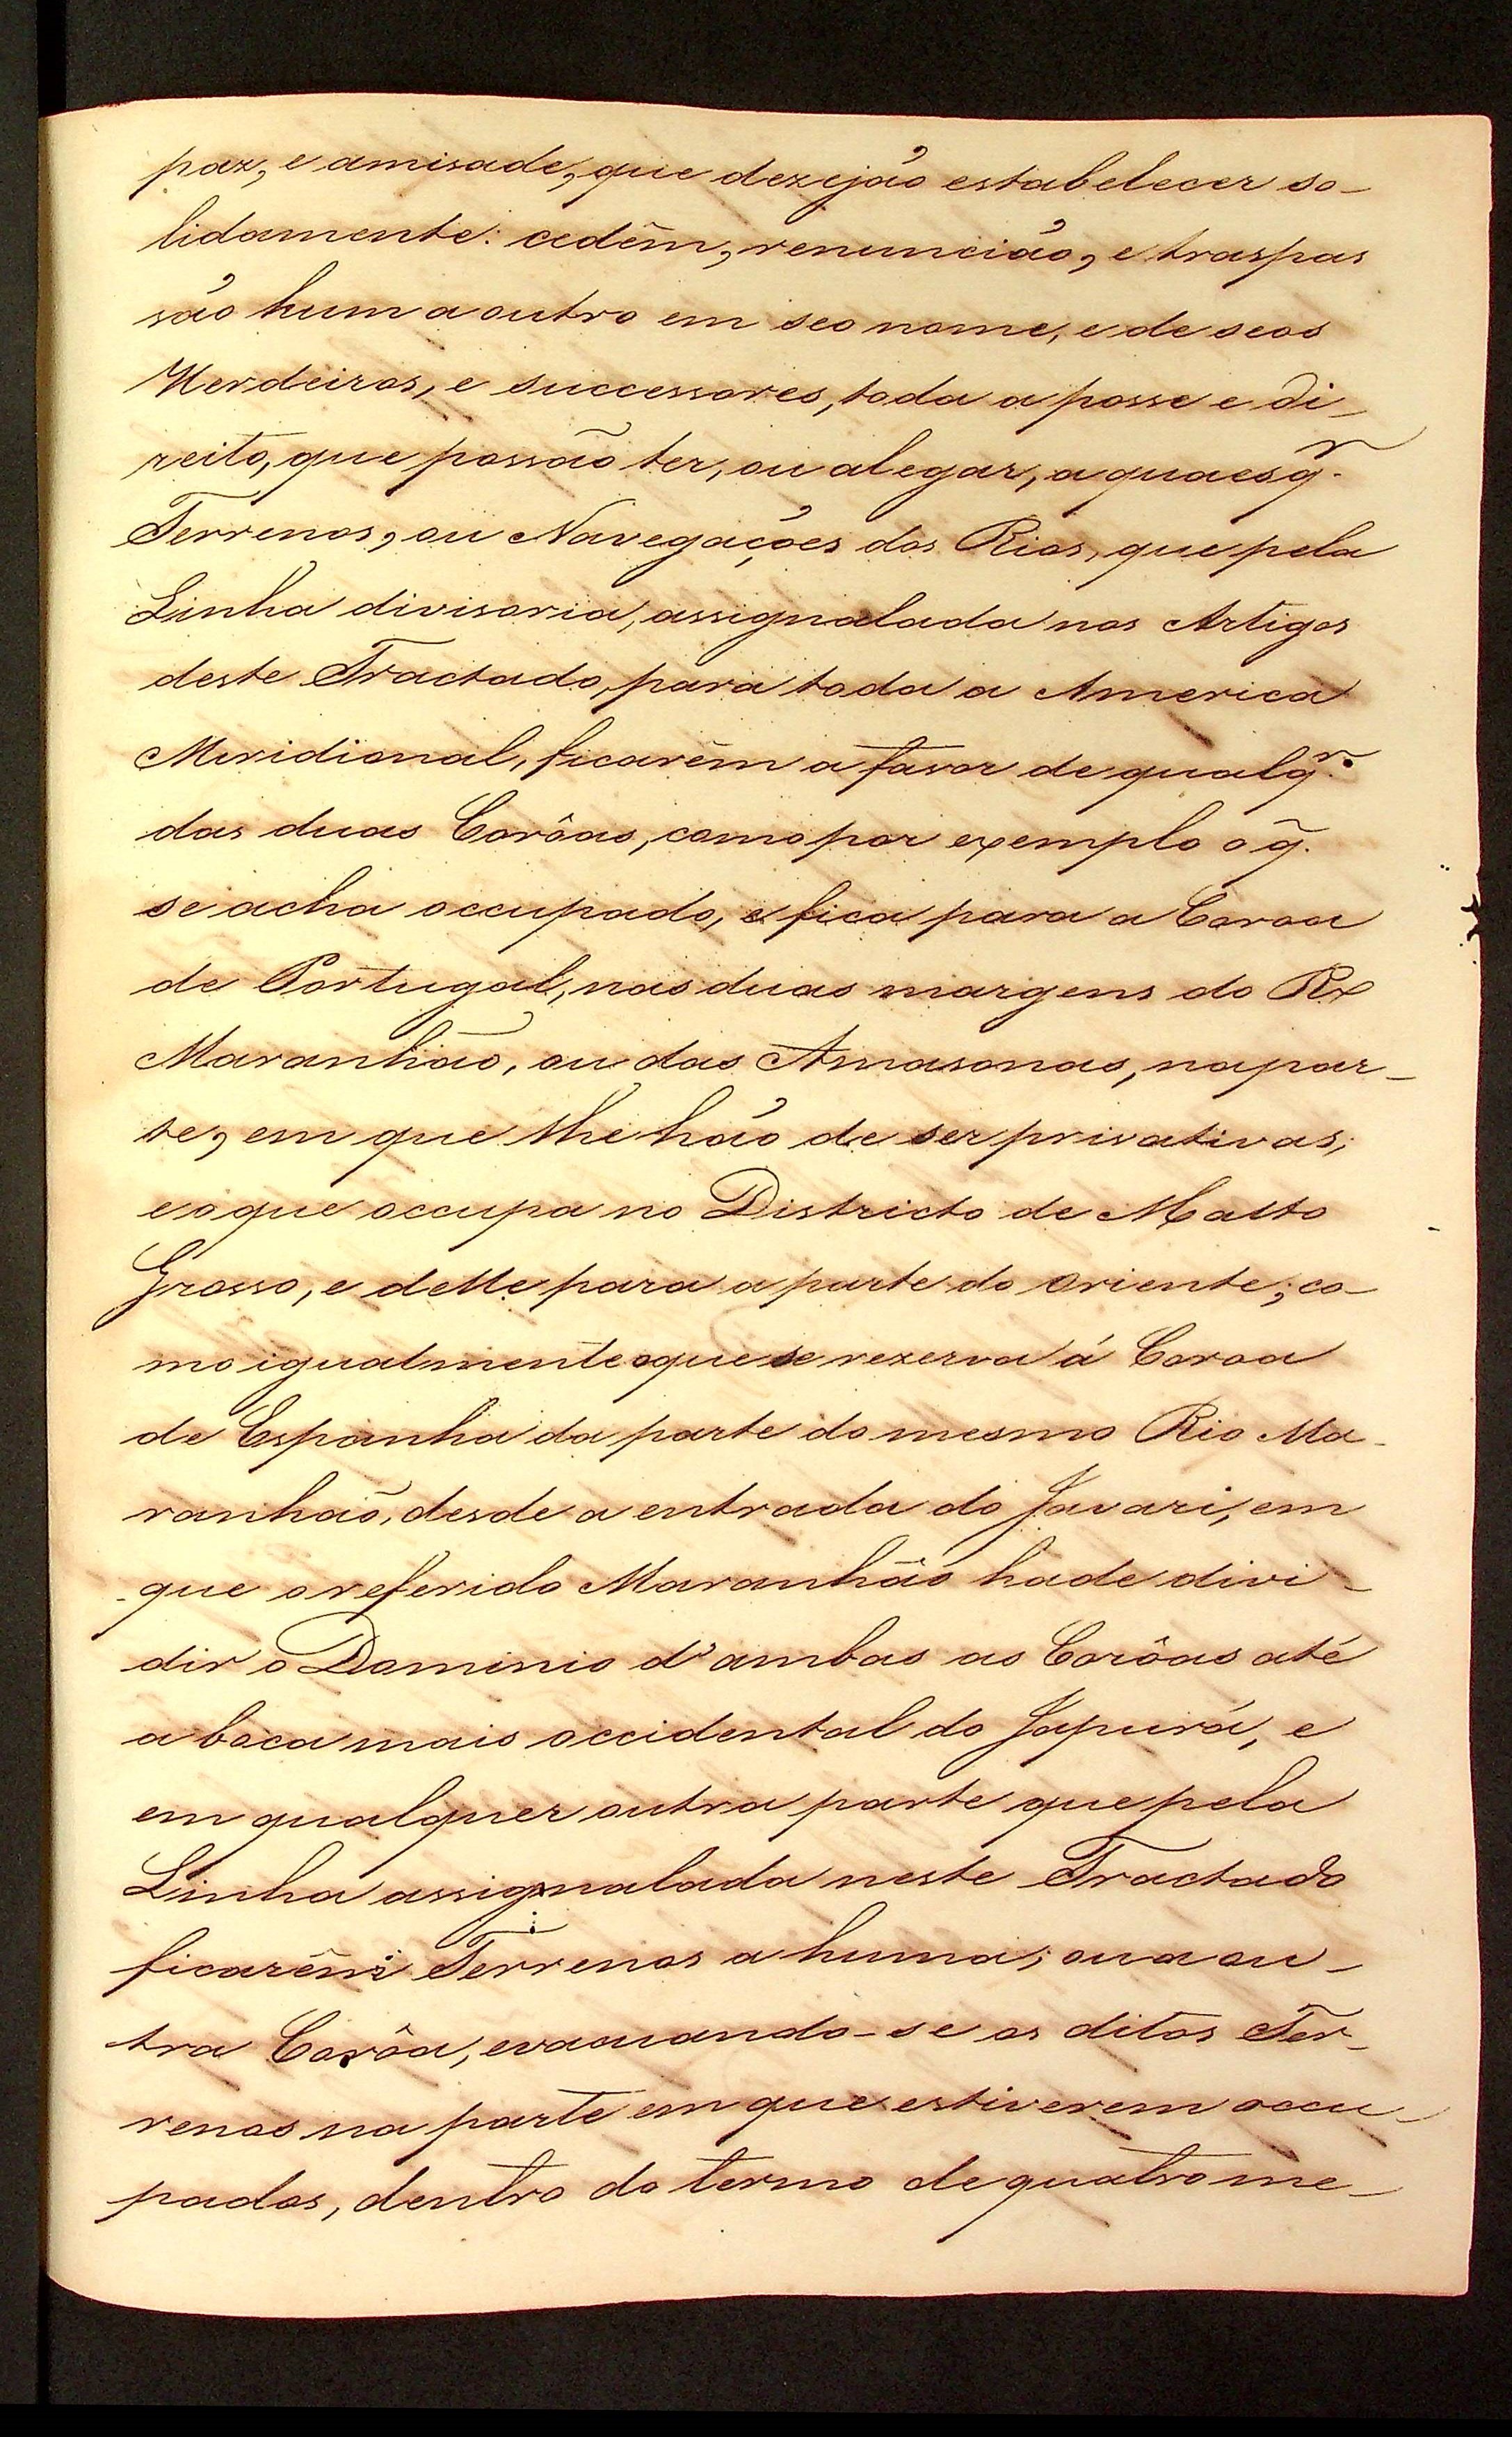 paz, e amisade, que dezejão estabelecer so-
lidamente: cedêm, renuncião, e traspas
são hum a outro em seo nome, e de seos
Herdeiros, e successores, toda a posse e di-
reito, que possão ter, ou alegar, a quaesq̃r.
Terrenos, ou Navegações dos Rios, que pela
Linha divisoria, assignalada nos Artigos
deste Tractado, para toda a America
Meridional, ficarêm a favor de qualq̃r.
das duas Corôas, como por exemplo o q̃.
se acha occupado, e fica para a Coroa
de Portugal, nas duas margens do Rº
Maranhão, ou das Amasonas, na par-
te, em que lhe hão de ser privativas;
e o que occupa no Districto de Matto
Grosso, e delle para a parte do oriente; co-
mo igualmente o que se rezerva á Coroa
de Espanha da parte do mesmo Rio Ma-
ranhão, desde a entrada do Javari, em
que o referido Maranhão hade divi-
dir o Dominio d'ambas as Corôas até
a boca mais occidental do Japurá, e
em qualquer outra parte que pela
Linha assignalada neste Tractado
ficarêm Terrenos a huma; ou a ou-
tra Corôa, evacuando-se os ditos Ter-
renos na parte em que estiverem occu-
pados, dentro do termo de quatro me-